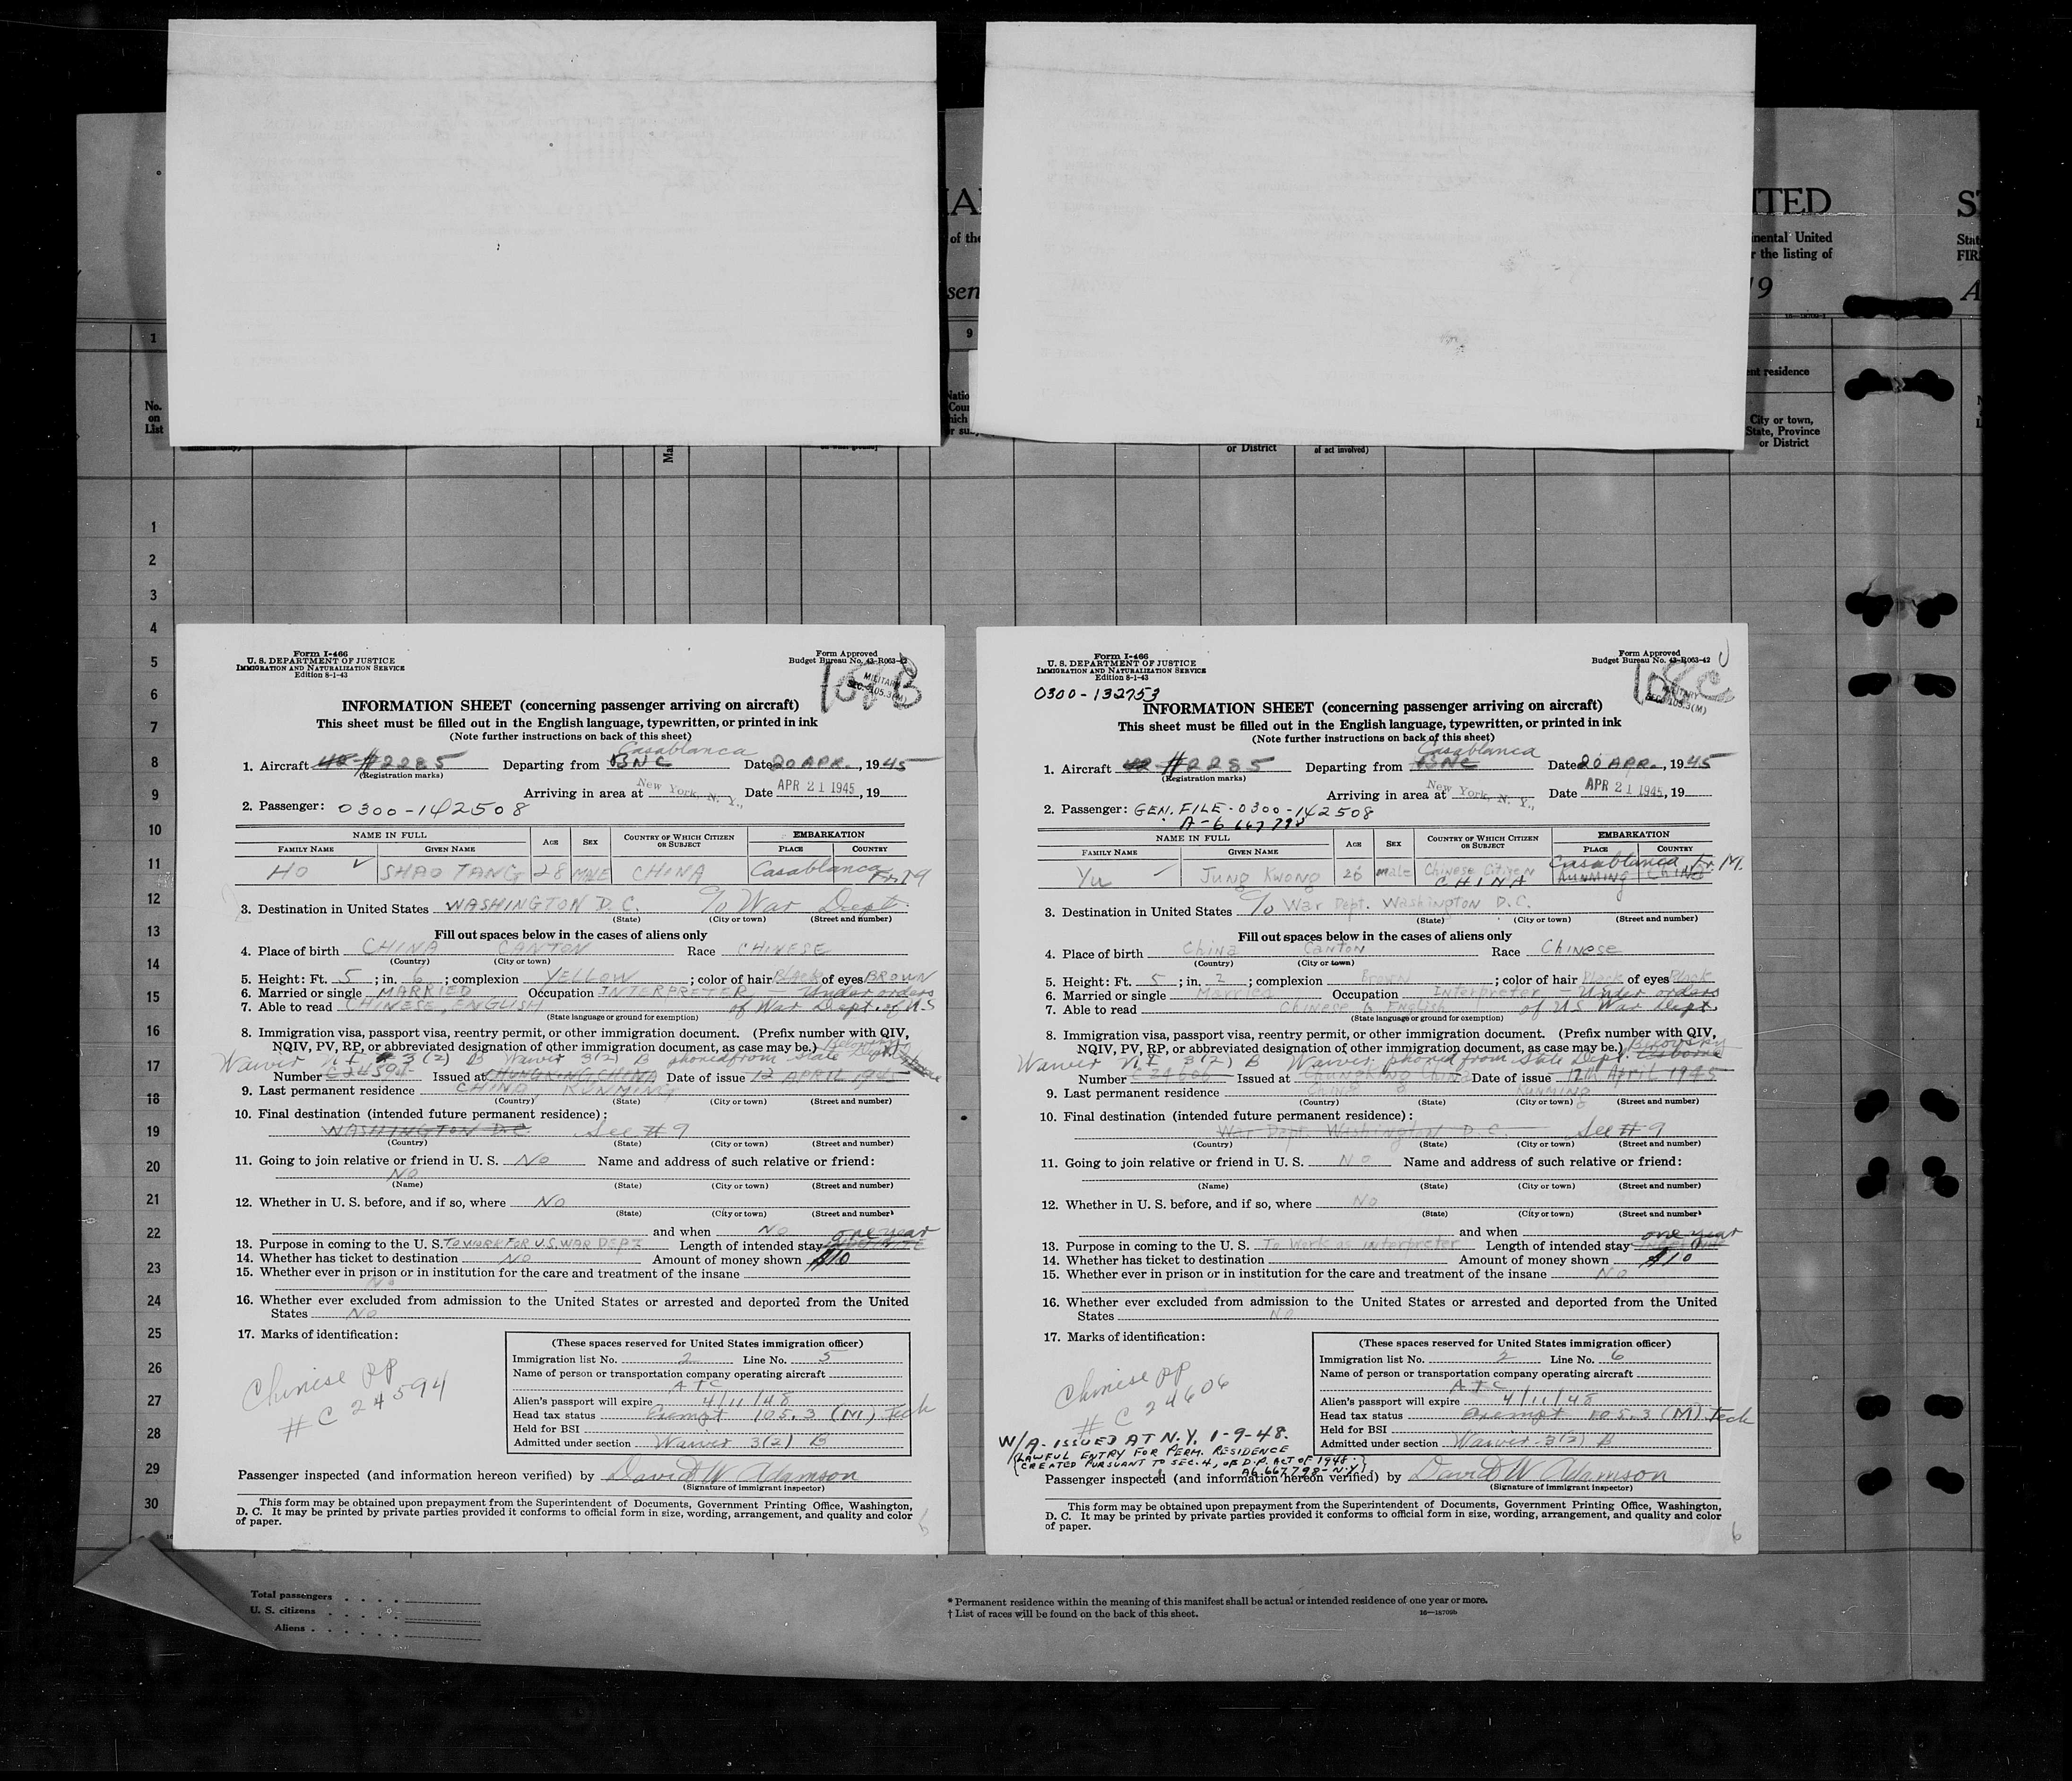 IAN
ITED
ST
of the
inental United
Stat
r the listing of
FIR
sen
19
A
16—18709-1
1
9
ent residence
No.
on
List
City or town,
State, Province
or District
or District
of act involved)
1
2
3
4
5
6
7
8
9
10
11
12
13
14
15
16
17
18
19
20
21
22
23
24
25
26
27
28
29
30
Form I-466
U. S. DEPARTMENT OF JUSTICE
IMMIGRATION AND NATURALIZATION SERVICE
Edition 8-1-43
Form Approved
Budget Bureau No. 43-R063-42
108B
MILITARY
SEC. 105.3(M)
INFORMATION SHEET (concerning passenger arriving on aircraft)
This sheet must be filled out in the English language, typewritten, or printed in ink
(Note further instructions on back of this sheet)
Casablanca
1. Aircraft 42 #2285 Departing from BNC Date 20 APR., 1945
(Registration marks)
Arriving in area at New York, N. Y., Date APR 21 1945, 19
2. Passenger: 0300-142508
NAME IN FULL AGE SEX COUNTRY OF WHICH CITIZEN OR SUBJECT EMBARKATION
FAMILY NAME GIVEN NAME PLACE COUNTRY
HO SHAO TANG 28 MALE CHINA Casablanca Fr. M
3. Destination in United States WASHINGTON D.C. c/o War Dept.
(State) (City or town) (Street and number)
Fill out spaces below in the cases of aliens only
4. Place of birth CHINA CANTON Race CHINESE
(Country) (City or town)
5. Height: Ft. 5; in. 6; complexion YELLOW; color of hair Black of eyes BROWN
6. Married or single MARRIED Occupation INTERPRETER — Under orders
7. Able to read CHINESE, ENGLISH of War Dept. of U.S
(State language or ground for exemption)
8. Immigration visa, passport visa, reentry permit, or other immigration document. (Prefix number with QIV,
NQIV, PV, RP, or abbreviated designation of other immigration document, as case may be.)
Waiver 3(2) B Waiver 3(2) B phoned from State Dept.
Number C24594 Issued at CHUNGKING, CHINA Date of issue 12 APRIL 1945
9. Last permanent residence CHINA KUNMING
(Country) (State) (City or town) (Street and number)
10. Final destination (intended future permanent residence):
WASHINGTON D.C See #9
(Country) (State) (City or town) (Street and number)
11. Going to join relative or friend in U. S. No Name and address of such relative or friend:
NO
(Name) (State) (City or town) (Street and number)
12. Whether in U. S. before, and if so, where No
(State) (City or town) (Street and number)
and when No one year
13. Purpose in coming to the U. S. TO WORK FOR U.S. WAR DEPT Length of intended stay INDEFINITE
14. Whether has ticket to destination NO Amount of money shown $10
15. Whether ever in prison or in institution for the care and treatment of the insane
No
16. Whether ever excluded from admission to the United States or arrested and deported from the United
States NO
17. Marks of identification:
Chinese PP
# C 24594
(These spaces reserved for United States immigration officer)
Immigration list No. 2 Line No. 5
Name of person or transportation company operating aircraft
ATC
Alien's passport will expire 4/11/48
Head tax status Exempt 105.3 (M) Tech
Held for BSI
Admitted under section Waiver 3(2) B
Passenger inspected (and information hereon verified) by David W Adamson
(Signature of immigrant inspector)
This form may be obtained upon prepayment from the Superintendent of Documents, Government Printing Office, Washington,
D. C. It may be printed by private parties provided it conforms to official form in size, wording, arrangement, and quality and color
of paper.
6
Form I-466
U. S. DEPARTMENT OF JUSTICE
IMMIGRATION AND NATURALIZATION SERVICE
Edition 8-1-43
Form Approved
Budget Bureau No. 43-R063-42
0300-132753
108C
MILITARY
SEC. 105.3(M)
INFORMATION SHEET (concerning passenger arriving on aircraft)
This sheet must be filled out in the English language, typewritten, or printed in ink
(Note further instructions on back of this sheet)
Casablanca
1. Aircraft 42 #2285 Departing from BNC Date 20 APR., 1945
(Registration marks)
Arriving in area at New York, N. Y., Date APR 21 1945, 19
2. Passenger: GEN. FILE-0300-142508
A-6 667 798
NAME IN FULL AGE SEX COUNTRY OF WHICH CITIZEN OR SUBJECT EMBARKATION
FAMILY NAME GIVEN NAME PLACE COUNTRY
Yu Jung Kwong 26 male Chinese Citizen CHINA Casablanca Fr. M. KUNMING CHINA
3. Destination in United States c/o War Dept. Washington D.C.
(State) (City or town) (Street and number)
Fill out spaces below in the cases of aliens only
4. Place of birth China Canton Race Chinese
(Country) (City or town)
5. Height: Ft. 5; in. 2; complexion Brown; color of hair Black of eyes Black
6. Married or single Married Occupation Interpreter — Under orders
7. Able to read Chinese & English of US War Dept.
(State language or ground for exemption)
8. Immigration visa, passport visa, reentry permit, or other immigration document. (Prefix number with QIV,
NQIV, PV, RP, or abbreviated designation of other immigration document, as case may be.)
Waiver 3(2) B Waiver phoned from State Dept.
Number C 24606 Issued at Chungking China Date of issue 12th April 1945
9. Last permanent residence China Kunming
(Country) (State) (City or town) (Street and number)
10. Final destination (intended future permanent residence):
War Dept. Washington D.C. See #9
(Country) (State) (City or town) (Street and number)
11. Going to join relative or friend in U. S. NO Name and address of such relative or friend:
(Name) (State) (City or town) (Street and number)
12. Whether in U. S. before, and if so, where No
(State) (City or town) (Street and number)
and when one year
13. Purpose in coming to the U. S. To work as interpreter Length of intended stay
14. Whether has ticket to destination Amount of money shown $10
15. Whether ever in prison or in institution for the care and treatment of the insane NO
16. Whether ever excluded from admission to the United States or arrested and deported from the United
States NO
17. Marks of identification:
Chinese PP
# C 24606
(These spaces reserved for United States immigration officer)
Immigration list No. 2 Line No. 6
Name of person or transportation company operating aircraft
ATC
Alien's passport will expire 4/11/48
Head tax status Exempt 105.3 (M) Tech
Held for BSI
Admitted under section Waiver 3(2) B
W/A-ISSUED AT N.Y. 1-9-48.
LAWFUL ENTRY FOR PERM. RESIDENCE
CREATED PURSUANT TO SEC. 4, OF D.P. ACT OF 1948.
A6 667 798-N.Y.
Passenger inspected (and information hereon verified) by David W Adamson
(Signature of immigrant inspector)
This form may be obtained upon prepayment from the Superintendent of Documents, Government Printing Office, Washington,
D. C. It may be printed by private parties provided it conforms to official form in size, wording, arrangement, and quality and color
of paper.
6
Total passengers
U. S. citizens
Aliens
* Permanent residence within the meaning of this manifest shall be actual or intended residence of one year or more.
† List of races will be found on the back of this sheet.
16—18709b